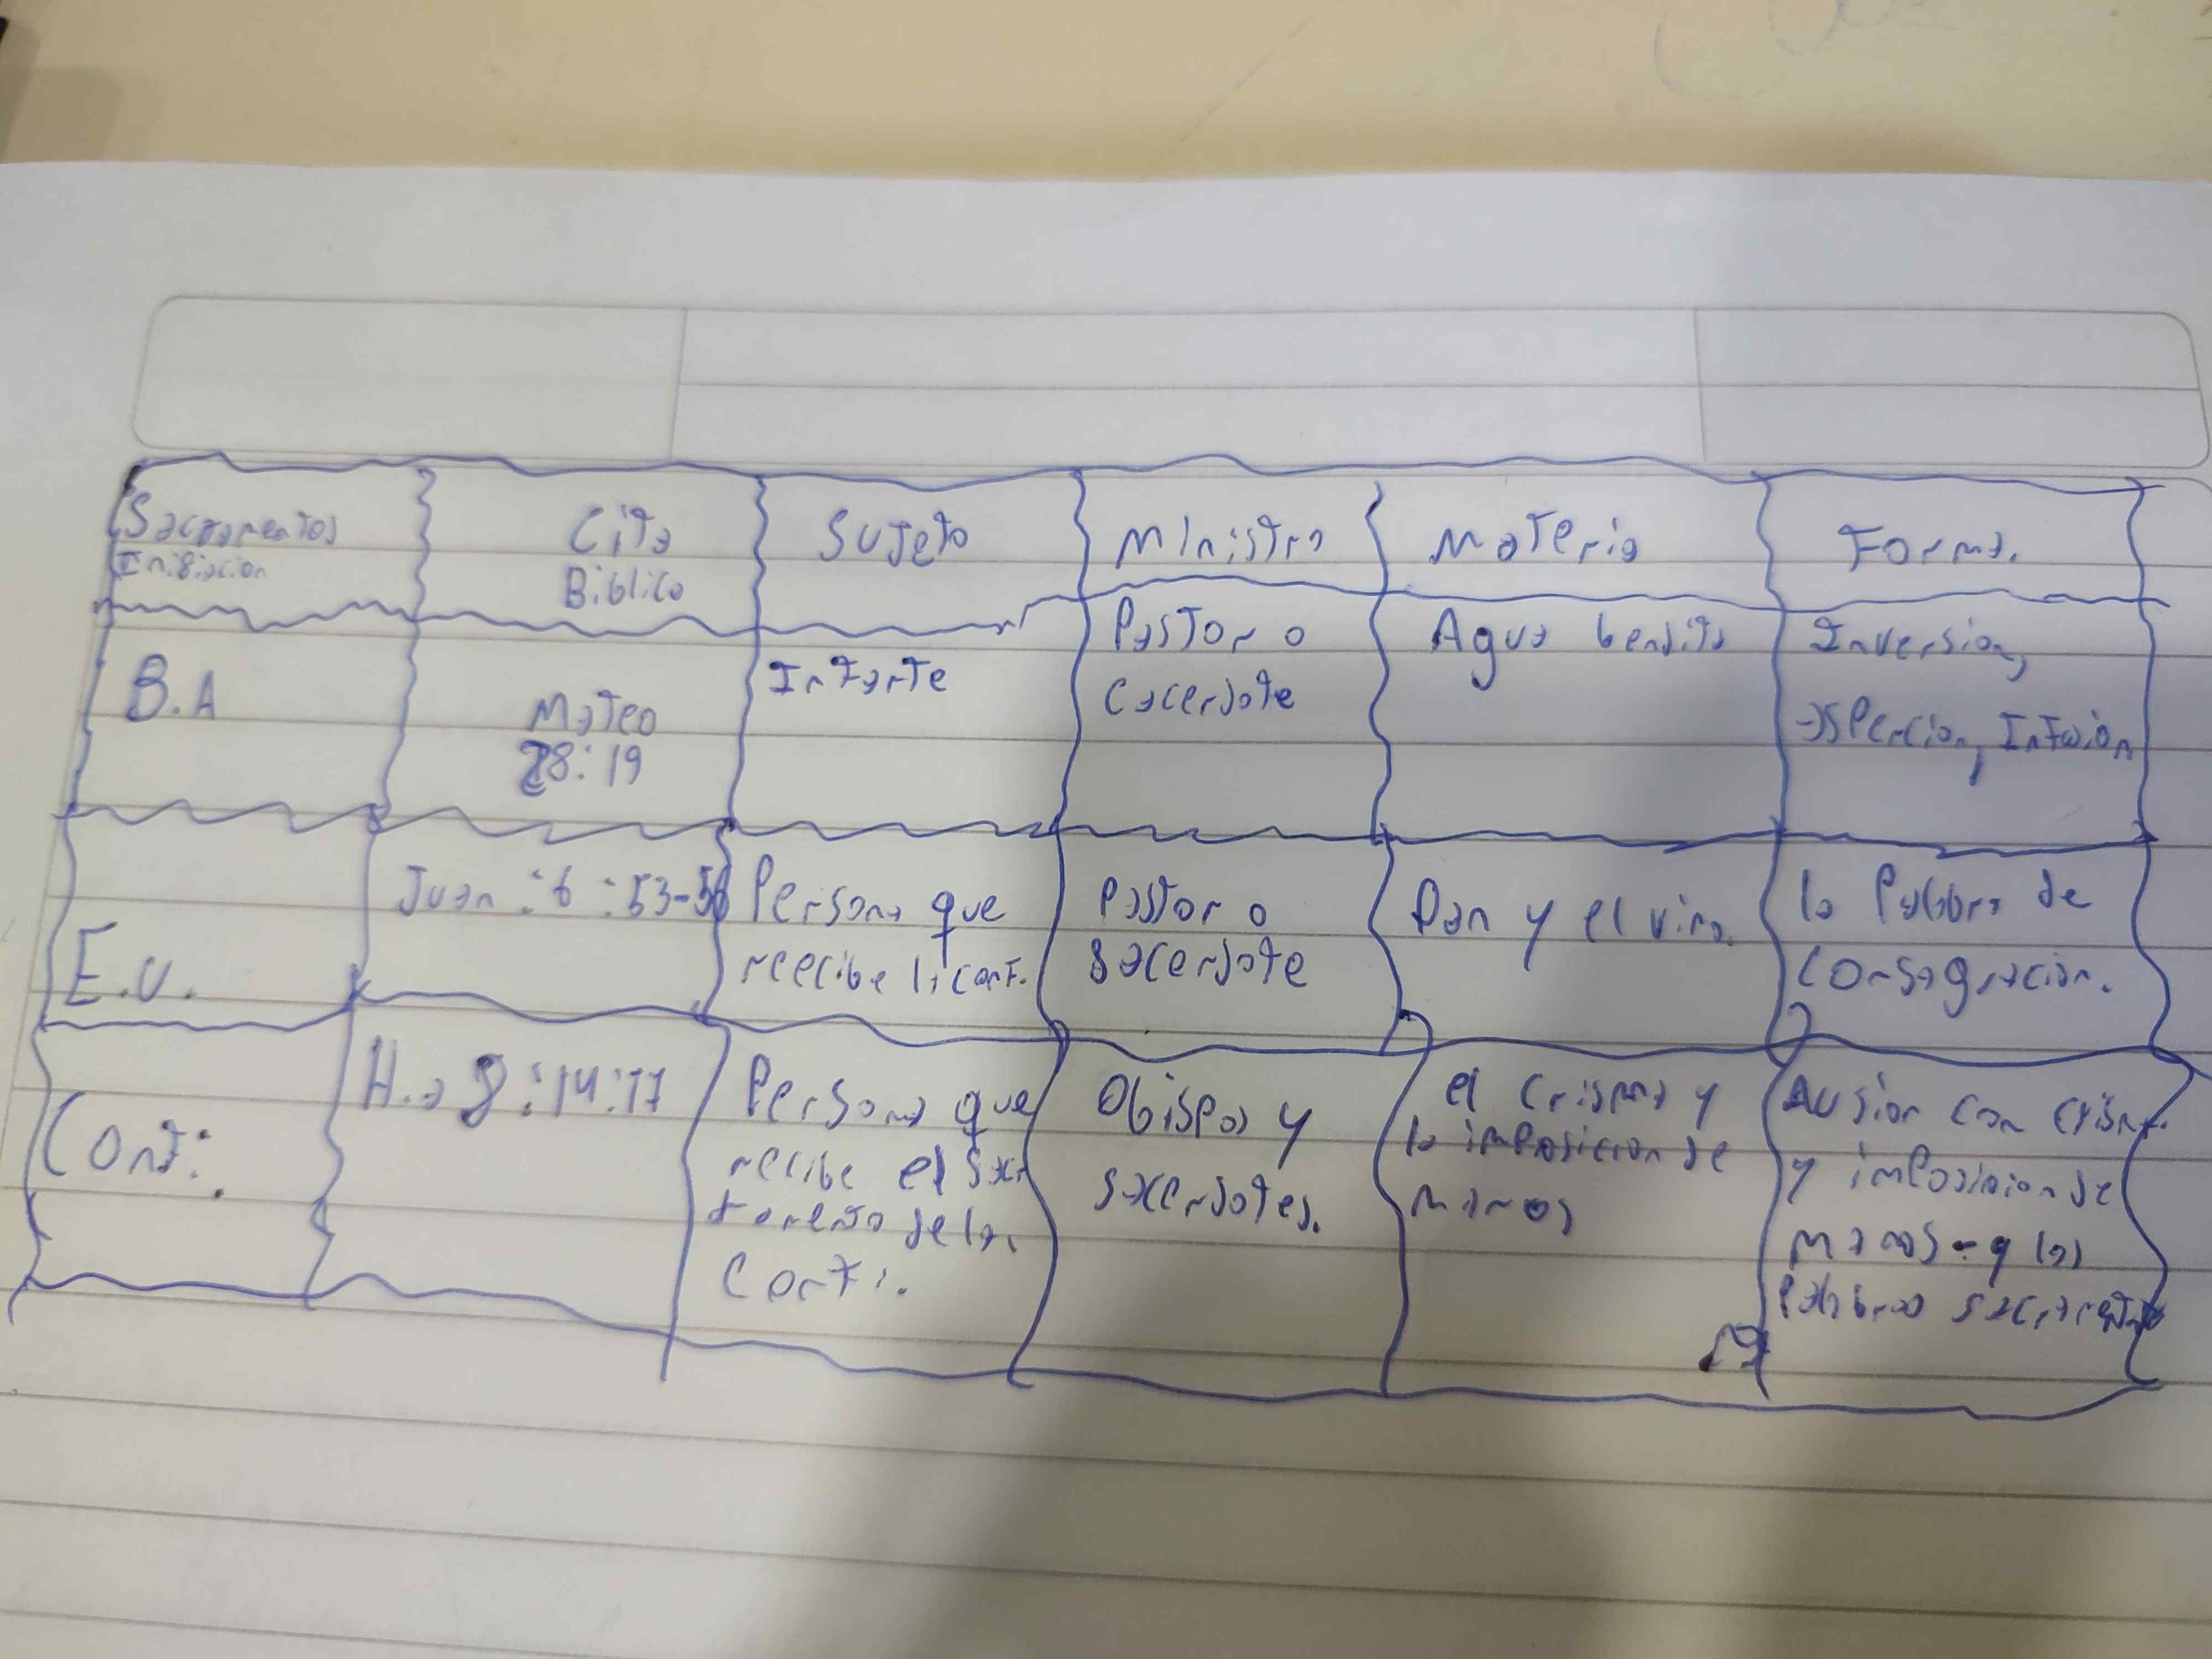 Sacramentos
Inisiacion
Cita
Biblica
Sujeto
Ministro
Materia
Forma.
B.A
Mateo
28:19
Infante
Pastor o
Cacerdote
Agua bendita
Inversion,
aspercion, Infusion
E.U.
Juan :6 :53-56
Persona que
recibe la conf.
Pastor o
sacerdote
Pan y el vino.
la Palabra de
Consagracion.
Conf:.
H.a 8:14:17
Persona que
recibe el sacr
de la.
Confi.
Obispos y
sacerdotes.
el crisma y
la imposicion de
manos
con crisma.
y imposicion de
manos - y las
Palabras